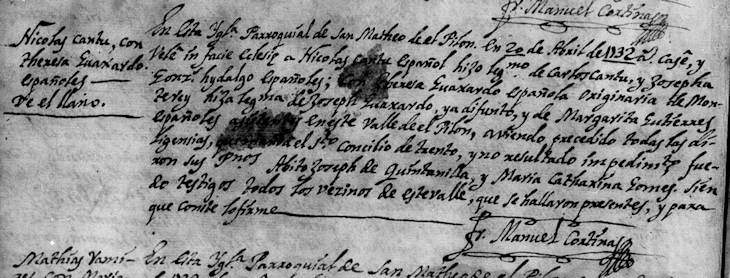 Fr. Manuel Cortinas
Nicolas Cantu, con
theresa Guaxardo.
españoles
De el llano.
En esta Ygla. Parroquial de San Matheo de el Pilon. En 20 de Abril de 1732 as. Casé, y
Velé in facie Eclesie a Nicolas Cantu español hizo legmo. de Carlos Cantu, y Zosepha
Gonz. hydalgo Españoles; con theresa Guaxardo Española Originaria de Mon-
terey hiza legma de Zoseph Guaxardo, ya difunto, y de Margarita Gutierres
Españoles en este Valle de el Pilon, aviendo precedido todas las di-
ligensias, el sto. Concilio de trento, y no resultado impedimto. fue-
ron sus Pnos. Abito Zoseph de Quintanilla, y Maria Catharina Gomes. Sien-
do testigos todos los vezinos de este valle, que se hallaron presentes, y para
que conste lo firme
Fr. Manuel Cortinas
Mathias Rami-
En esta Ygla. Parroquial de San Matheo de el Pilon